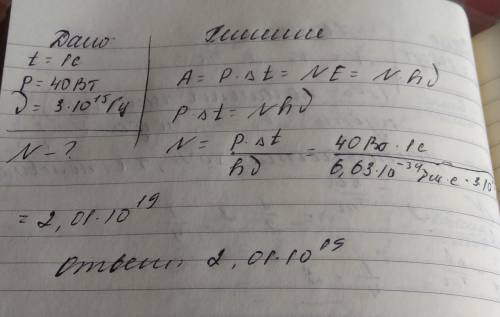 Дано
t = 1с
P = 40Вт
ν = 3·10¹⁵Гц
N - ?
Решение
A = P·Δt = NE = N·hν
P·Δt = Nhν
N = P·Δt / hν = 40Вт·1с / 6,63·10⁻³⁴Дж·с·3·10
= 2,01·10¹⁹
Ответ: 2,01·10¹⁹